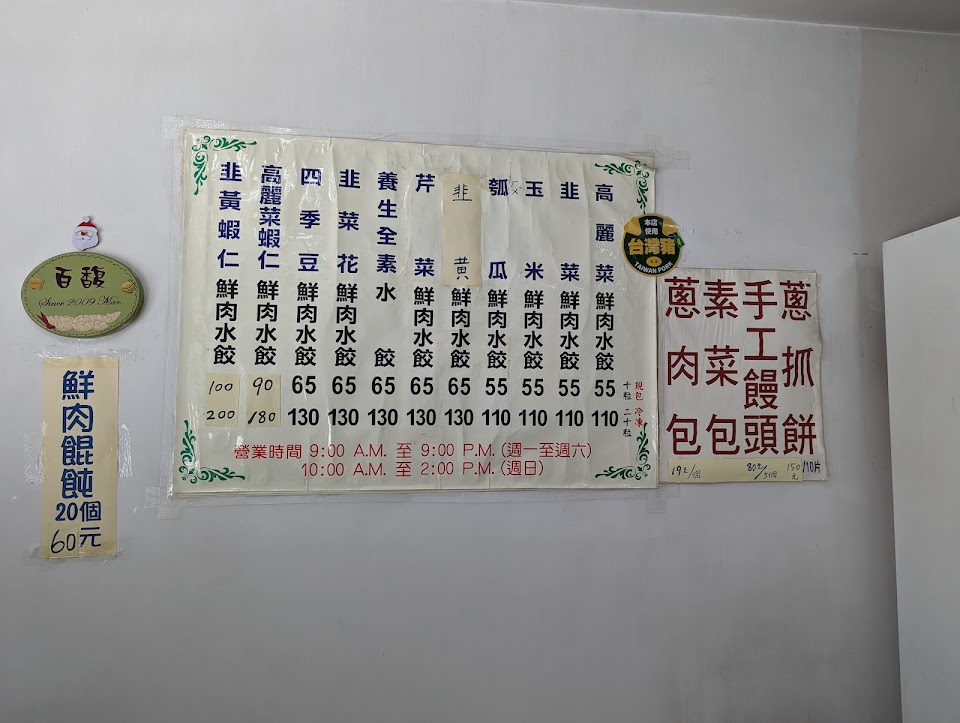 百馥
Since 2009 Mar.
鮮肉餛飩
20個
60元
高麗菜鮮肉水餃 55 110
韭菜鮮肉水餃 55 110
玉米鮮肉水餃 55 110
瓠瓜鮮肉水餃 55 110
韭黃鮮肉水餃 65 130
芹菜鮮肉水餃 65 130
養生全素水餃 65 130
韭菜花鮮肉水餃 65 130
四季豆鮮肉水餃 65 130
高麗菜蝦仁鮮肉水餃 90 180
韭黃蝦仁鮮肉水餃 100 200
現包 十粒
冷凍 二十粒
營業時間 9:00 A.M. 至 9:00 P.M. (週一至週六)
10:00 A.M. 至 2:00 P.M. (週日)
本店
使用
台灣豬
TAIWAN PORK
蔥抓餅
150元/10片
手工饅頭
素菜包
蔥肉包